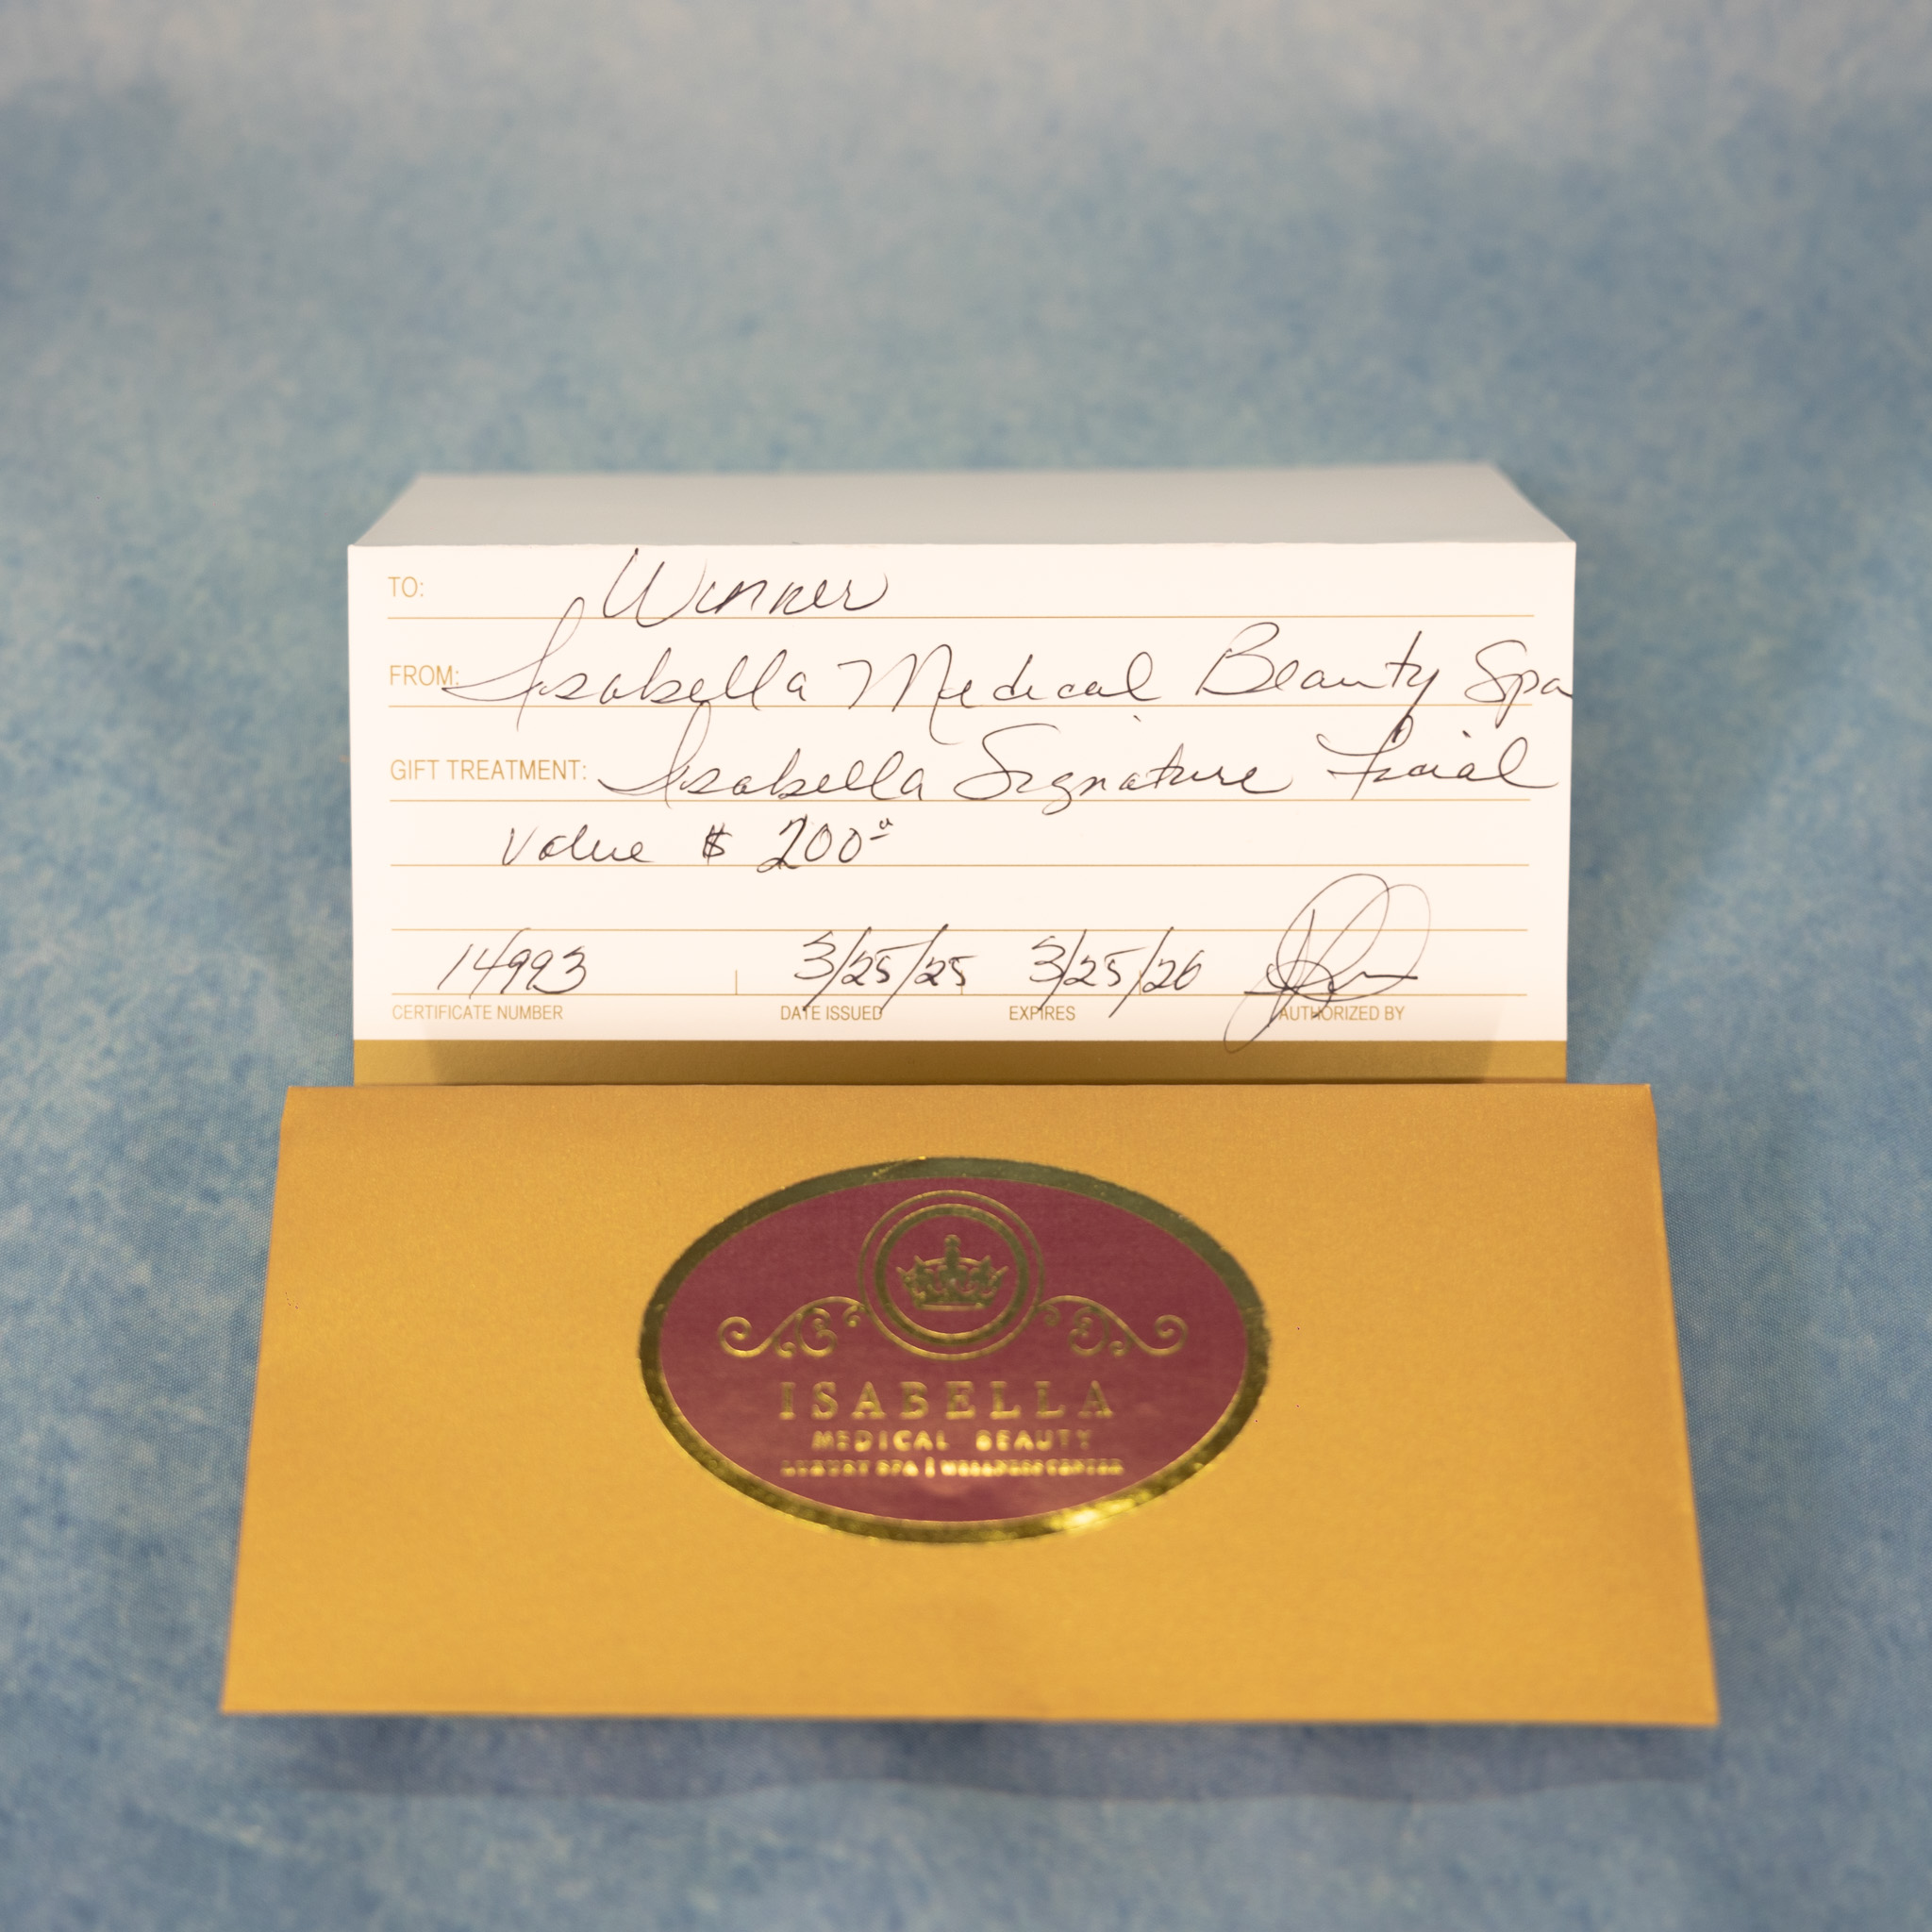 TO: Winner
FROM: Isabella Medical Beauty Spa
GIFT TREATMENT: Isabella Signature Facial
Value $ 200
14993 3/25/25 3/25/26
CERTIFICATE NUMBER DATE ISSUED EXPIRES AUTHORIZED BY
ISABELLA
MEDICAL BEAUTY
LUXURY SPA | WELLNESS CENTER